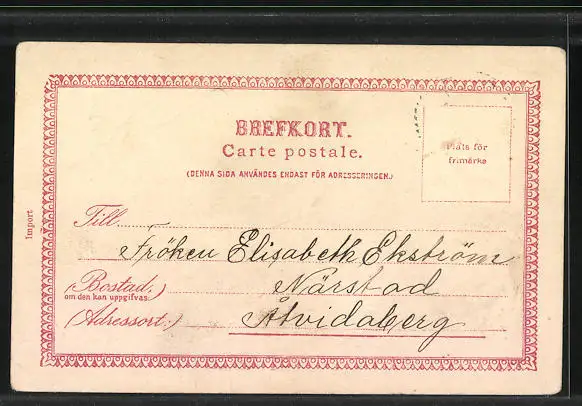 BREFKORT.
Carte postale.
(DENNA SIDA ANVÄNDES ENDAST FÖR ADRESSERINGEN.)
Plats för
frimärke
Import
Till
Fröken Elisabeth Ekström
(Bostad.)
om den kan uppgifvas:
Närstad
(Adressort.)
Åtvidaberg